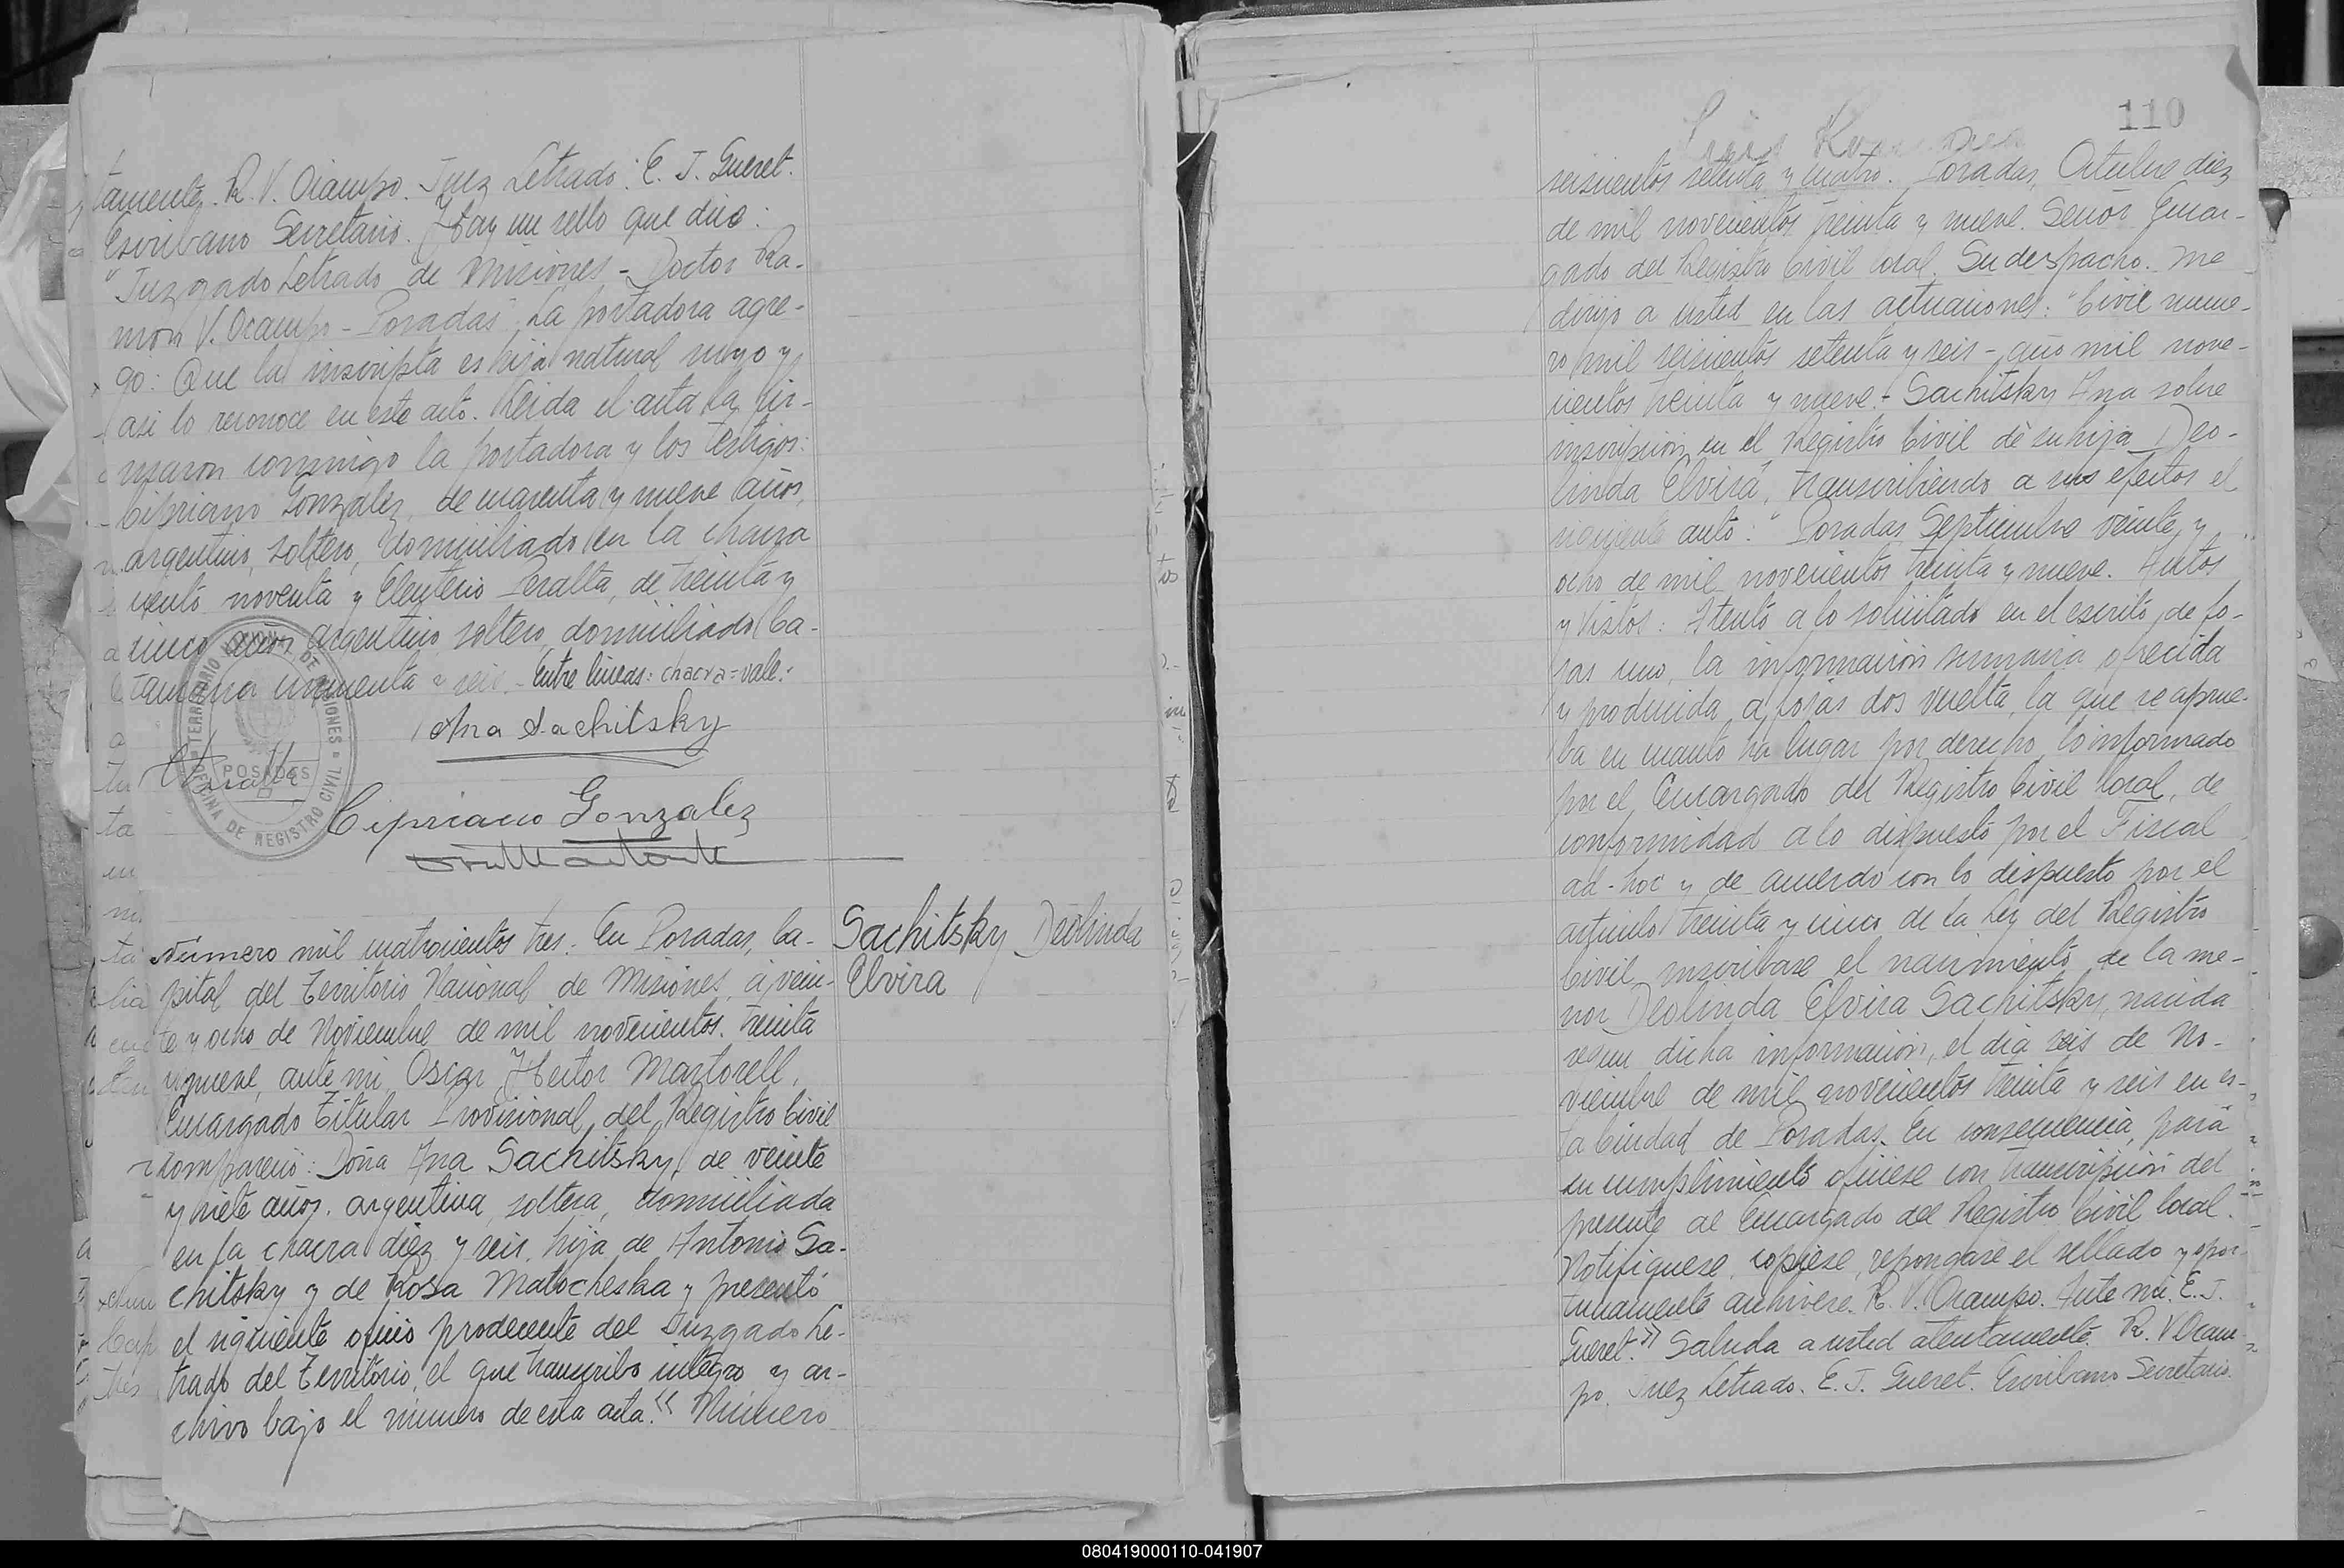 tamente. R. V. Ocampo. Juez Letrado. E. J. Gueret.
Escribano Secretario. Hay un sello que dice:
"Juzgado Letrado de Misiones - Doctor Ra-
món V. Ocampo - Posadas". La portadora agre-
gó: Que la inscripta es hija natural suya y
asi lo reconoce en este acto. Leida el acta la fir-
maron conmigo la portadora y los testigos:
Cipriano Gonzalez, de cuarenta y nueve años,
argentino, soltero, domiciliado en la chacra
ciento noventa y Eleuterio Peralta, de treinta y
cinco años, argentino, soltero, domiciliado Ca-
tamarca cincuenta y seis. - Entre lineas: chacra = vale.
Ana Sachitsky
TERRITORIO NACIONAL DE MISIONES
POSADAS
OFICINA DE REGISTRO CIVIL
Cipriano Gonzalez
Número mil cuatrocientos tres. En Posadas, Ca-
pital del Territorio Nacional de Misiones, á vein-
te y ocho de Noviembre de mil novecientos treinta
y nueve, ante mi, Oscar Hector Martorell,
Encargado Titular Provisional del Registro Civil
compareció: Doña Ana Sachitsky, de veinte
y siete años, argentina, soltera, domiciliada
en la chacra diez y seis, hija de Antonio Sa-
chitsky y de Rosa Matocheska y presentó
el siguiente oficio procedente del Juzgado Le-
trado del Territorio, el que transcribo integro y ar-
chivo bajo el número de esta acta. "Número
Sachitsky Deolinda
Elvira
110
seiscientos setenta y cuatro. Posadas, Octubre diez
de mil novecientos treinta y nueve. Señor Encar-
gado del Registro Civil local. Su despacho. Me
dirijo a usted en las actuaciones: "Civil nume-
ro mil seiscientos setenta y seis - año mil nove-
cientos treinta y nueve - Sachitsky Ana sobre
inscripción en el Registro Civil de su hija Deo-
linda Elvira", transcribiendo a sus efectos el
siguiente auto: "Posadas Septiembre veinte y
ocho de mil novecientos treinta y nueve. Autos
y Vistos: Atento a lo solicitado en el escrito de fo-
jas uno, la información sumaria ofrecida
y producida a fojas dos vuelta, la que se aprue-
ba en cuanto ha lugar por derecho, lo informado
por el Encargado del Registro Civil local, de
conformidad a lo dispuesto por el Fiscal
ad-hoc y de acuerdo con lo dispuesto por el
articulo treinta y cinco de la Ley del Registro
Civil, inscribase el nacimiento de la me-
nor Deolinda Elvira Sachitsky, nacida
según dicha información, el dia seis de No-
viembre de mil novecientos treinta y seis en es-
ta Ciudad de Posadas. En consecuencia, para
su cumplimiento ofíciese con transcripción del
presente al Encargado del Registro Civil local.
Notifiquese, copiese, repongase el sellado y opor-
tunamente archivese. R. V. Ocampo. Ante mi. E. J.
Gueret." Saluda a usted atentamente. R. V Ocam-
po. Juez Letrado. E. J. Gueret. Escribano Secretario.
080419000110-041907